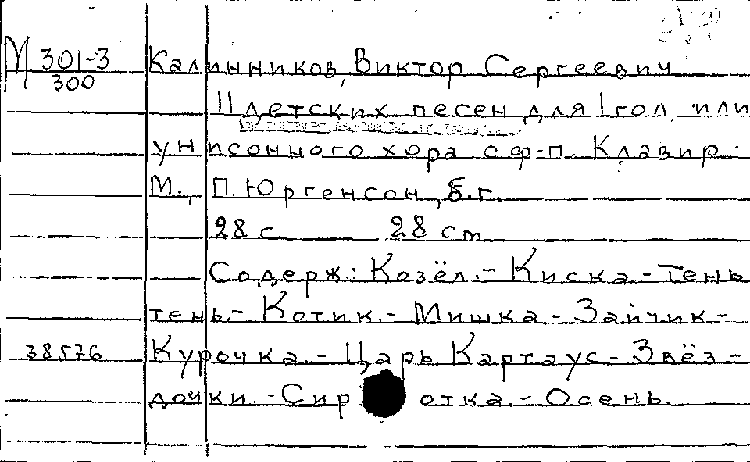 М 301-3
300
Калинников, Виктор Сергеевич
11 детских песен для 1 гол. или
унисонного хора с ф-п. Клавир.
М., П. Юргенсон, б.г.
28 с. 28 см.
Содерж: Козёл.- Киска.- Тень-
тень.- Котик.- Мишка.- Зайчик.-
38576 Курочка.- Царь Картаус.- Звёз-
дочки.- Сиротка.- Осень.